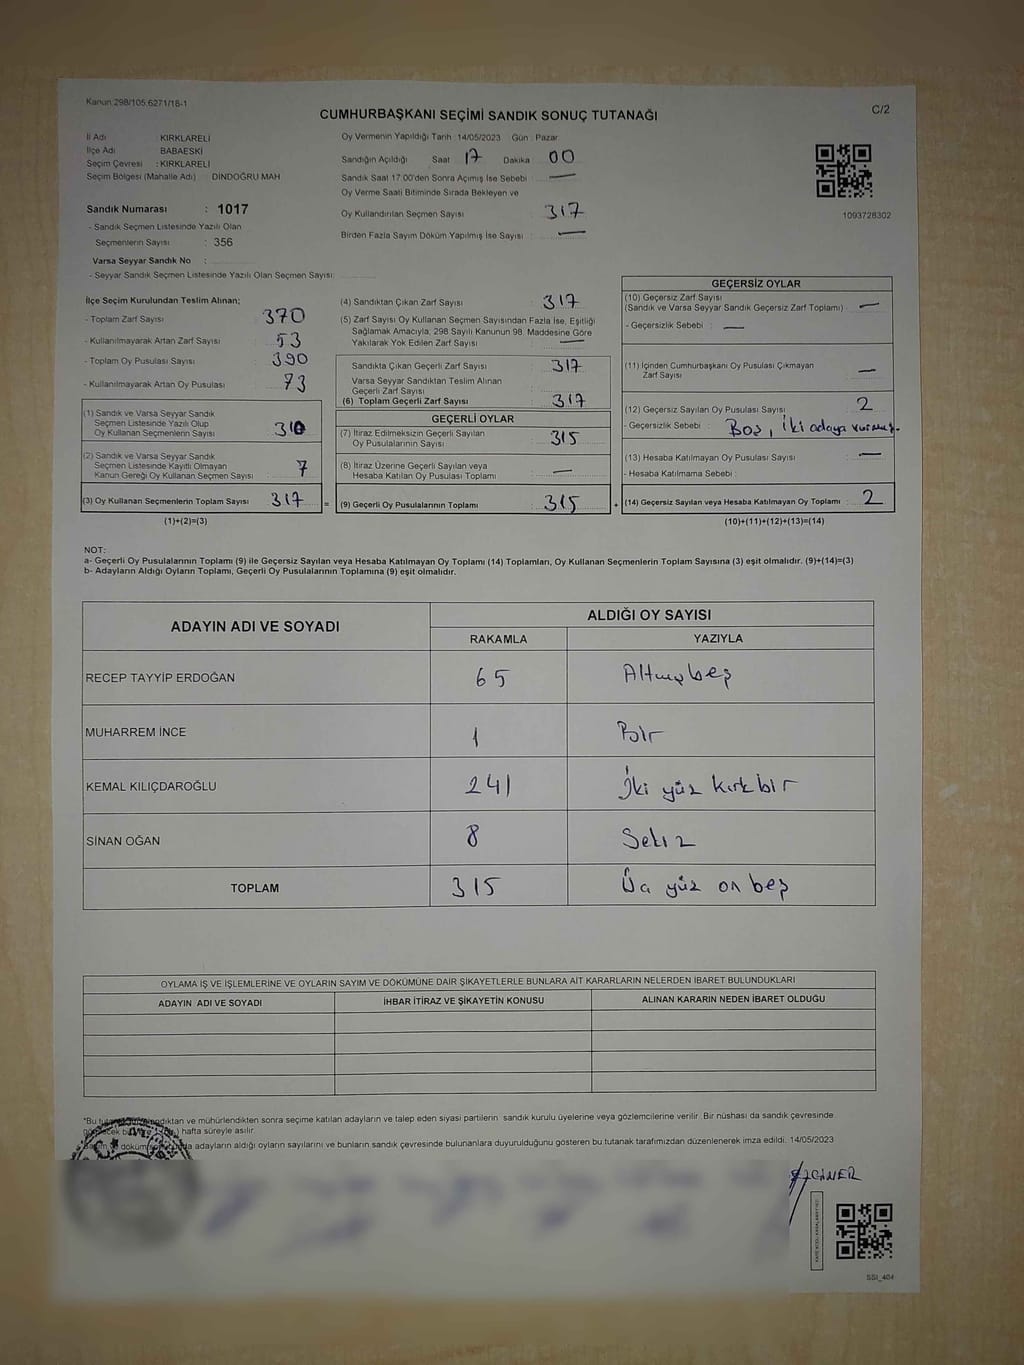 Kanun 298/105,6271/18-1
C/2
CUMHURBAŞKANI SEÇİMİ SANDIK SONUÇ TUTANAĞI
İl Adı KIRKLARELİ
İlçe Adı BABAESKİ
Seçim Çevresi : KIRKLARELİ
Seçim Bölgesi (Mahalle Adı) : DİNDOĞRU MAH
Sandık Numarası : 1017
- Sandık Seçmen Listesinde Yazılı Olan
Seçmenlerin Sayısı : 356
Varsa Seyyar Sandık No :
- Seyyar Sandık Seçmen Listesinde Yazılı Olan Seçmen Sayısı:
Oy Vermenin Yapıldığı Tarih 14/05/2023 Gün : Pazar
Sandığın Açıldığı Saat 17 Dakika 00
Sandık Saat 17:00'den Sonra Açılmış İse Sebebi : —
Oy Verme Saati Bitiminde Sırada Bekleyen ve
Oy Kullandırılan Seçmen Sayısı : 317
Birden Fazla Sayım Döküm Yapılmış İse Sayısı : —
1093728302
İlçe Seçim Kurulundan Teslim Alınan;
- Toplam Zarf Sayısı : 370
- Kullanılmayarak Artan Zarf Sayısı : 53
- Toplam Oy Pusulası Sayısı : 390
- Kullanılmayarak Artan Oy Pusulası : 73
(1) Sandık ve Varsa Seyyar Sandık
Seçmen Listesinde Yazılı Olup
Oy Kullanan Seçmenlerin Sayısı : 310
(2) Sandık ve Varsa Seyyar Sandık
Seçmen Listesinde Kayıtlı Olmayan
Kanun Gereği Oy Kullanan Seçmen Sayısı : 7
(3) Oy Kullanan Seçmenlerin Toplam Sayısı : 317
(1)+(2)=(3)
=
(4) Sandıktan Çıkan Zarf Sayısı : 317
(5) Zarf Sayısı Oy Kullanan Seçmen Sayısından Fazla İse, Eşitliği
Sağlamak Amacıyla, 298 Sayılı Kanunun 98. Maddesine Göre
Yakılarak Yok Edilen Zarf Sayısı : —
Sandıkta Çıkan Geçerli Zarf Sayısı : 317
Varsa Seyyar Sandıktan Teslim Alınan
Geçerli Zarf Sayısı :
(6) Toplam Geçerli Zarf Sayısı : 317
GEÇERLİ OYLAR
(7) İtiraz Edilmeksizin Geçerli Sayılan
Oy Pusulalarının Sayısı : 315
(8) İtiraz Üzerine Geçerli Sayılan veya
Hesaba Katılan Oy Pusulaları Toplamı : —
(9) Geçerli Oy Pusulalarının Toplamı : 315
+
GEÇERSİZ OYLAR
(10) Geçersiz Zarf Sayısı
(Sandık ve Varsa Seyyar Sandık Geçersiz Zarf Toplamı) : —
- Geçersizlik Sebebi : —
(11) İçinden Cumhurbaşkanı Oy Pusulası Çıkmayan
Zarf Sayısı : —
(12) Geçersiz Sayılan Oy Pusulası Sayısı : 2
- Geçersizlik Sebebi : Boş, İki adaya vurmuş.
(13) Hesaba Katılmayan Oy Pusulası Sayısı : —
- Hesaba Katılmama Sebebi :
(14) Geçersiz Sayılan veya Hesaba Katılmayan Oy Toplamı : 2
(10)+(11)+(12)+(13)=(14)
NOT:
a- Geçerli Oy Pusulalarının Toplamı (9) ile Geçersiz Sayılan veya Hesaba Katılmayan Oy Toplamı (14) Toplamları, Oy Kullanan Seçmenlerin Toplam Sayısına (3) eşit olmalıdır. (9)+(14)=(3)
b- Adayların Aldığı Oyların Toplamı, Geçerli Oy Pusulalarının Toplamına (9) eşit olmalıdır.
ADAYIN ADI VE SOYADI
ALDIĞI OY SAYISI
RAKAMLA YAZIYLA
RECEP TAYYİP ERDOĞAN 65 Altmışbeş
MUHARREM İNCE 1 Bir
KEMAL KILIÇDAROĞLU 241 İki yüz kırk bir
SİNAN OĞAN 8 Sekiz
TOPLAM 315 Üç yüz on beş
OYLAMA İŞ VE İŞLEMLERİNE VE OYLARIN SAYIM VE DÖKÜMÜNE DAİR ŞİKAYETLERLE BUNLARA AİT KARARLARIN NELERDEN İBARET BULUNDUKLARI
ADAYIN ADI VE SOYADI İHBAR İTİRAZ VE ŞİKAYETİN KONUSU ALINAN KARARIN NEDEN İBARET OLDUĞU
*Bu ve mühürlendikten sonra seçime katılan adayların ve talep eden siyasi partilerin sandık kurulu üyelerine veya gözlemcilerine verilir. Bir nüshası da sandık çevresinde
hafta süreyle asılır.
adayların aldığı oyların sayılarını ve bunların sandık çevresinde bulunanlara duyurulduğunu gösteren bu tutanak tarafımızdan düzenlenerek imza edildi. 14/05/2023
SSI_404